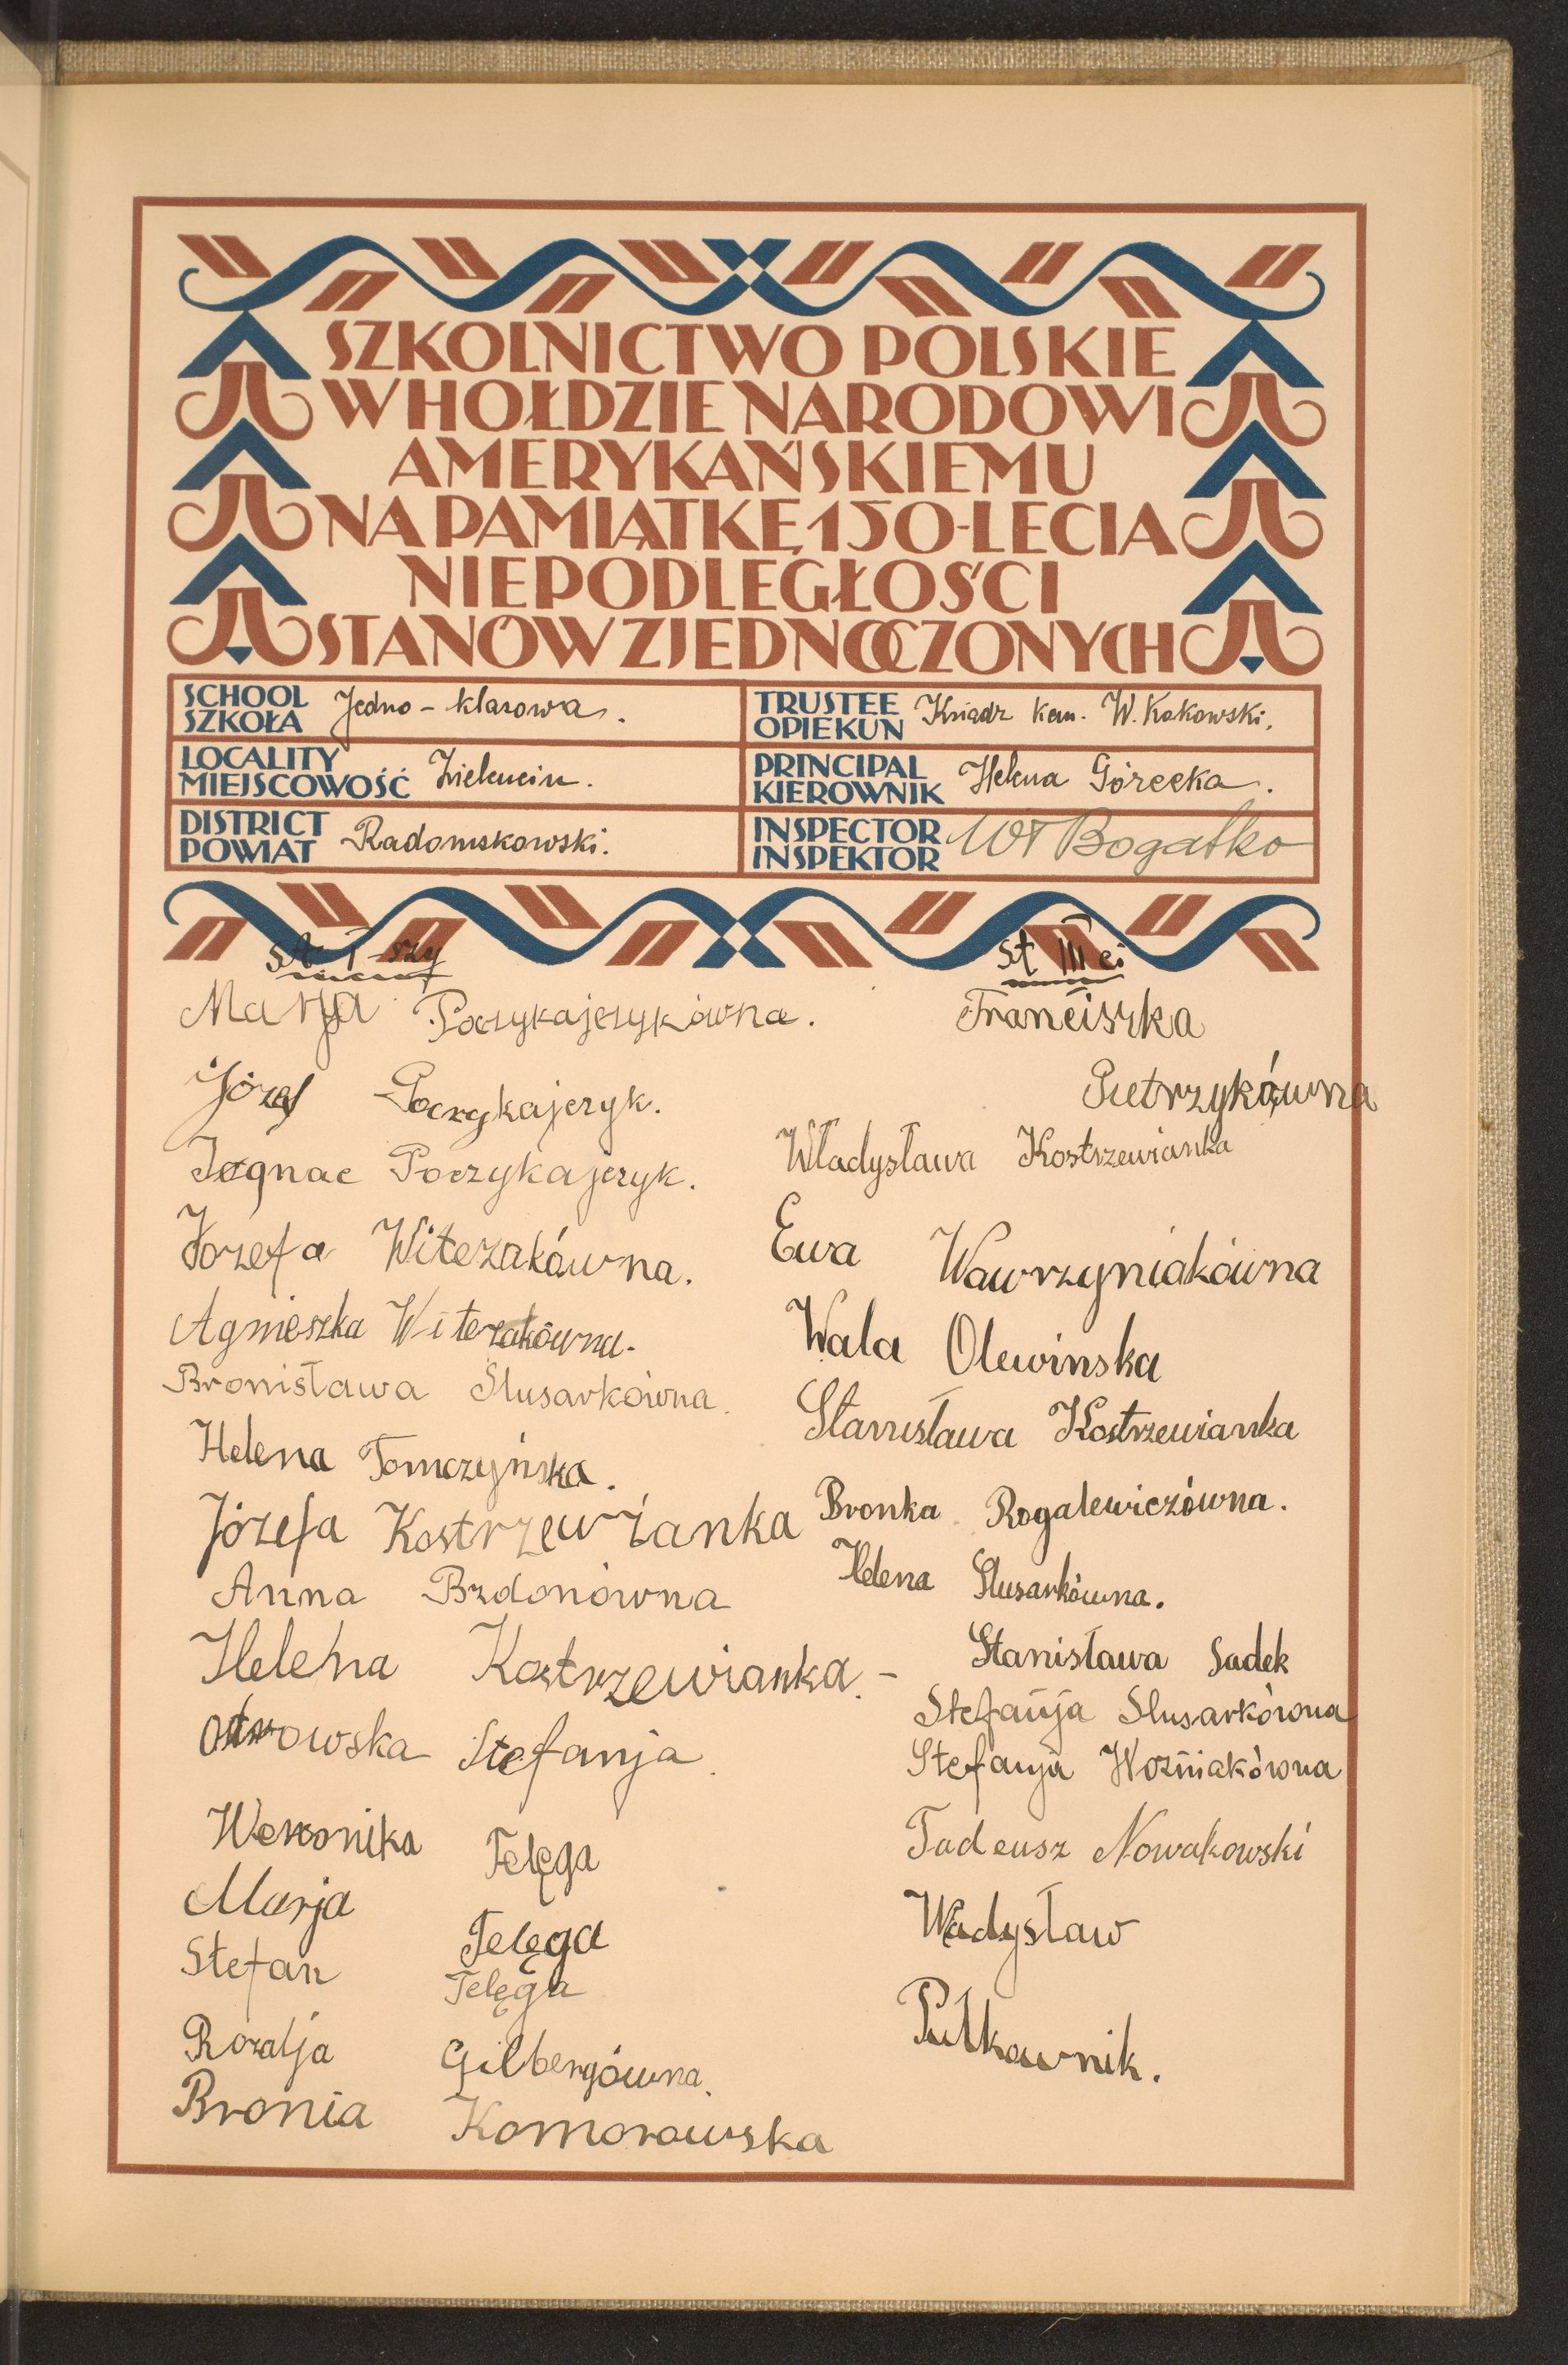 SZKOLNICTWO POLSKIE
W HOŁDZIE NARODOWI
AMERYKAŃSKIEMU
NA PAMIĄTKĘ 150-LECIA
NIEPODLEGŁOŚCI
STANÓW ZJEDNOCZONYCH
SCHOOL
SZKOŁA
Jedno-klasowa.
TRUSTEE
OPIEKUN
Ksiądz kan. W. Kokowski.
LOCALITY
MIEJSCOWOŚĆ
PRINCIPAL
KIEROWNIK
Helena Górecka.
DISTRICT
POWIAT
Radomskowski.
INSPECTOR
INSPEKTOR
Wł Bogatko
st I-szy
Marja Poczykajezykówna.
Józef Poczykajezyk.
Ignac Poczykajezyk.
Józefa Witezakówna.
Agnieszka Witezakówna.
Bronisława Slusarkówna.
Helena Tomczyńska.
Józefa Kostrzewianka
Anna Brdonówna
Helena Kostrzewianka.
Ostrowska Stefanja.
Weronika Telęga
Marja Telęga
Stefan Telęga
Rozalja Gilbergówna.
Bronia Komorowska
st III ci
Franciszka
Pietrzykówna
Władysława Kostrzewianka
Ewa Wawrzyniakówna
Wala Olewinska
Stanisława Kostrzewianka
Bronka Rogalewiczówna.
Helena Slusarkówna.
Stanisława Sadek
Stefanja Slusarkówna
Stefanja Woźniakówna
Tadeusz Nowakowski
Władysław
Pułkownik.